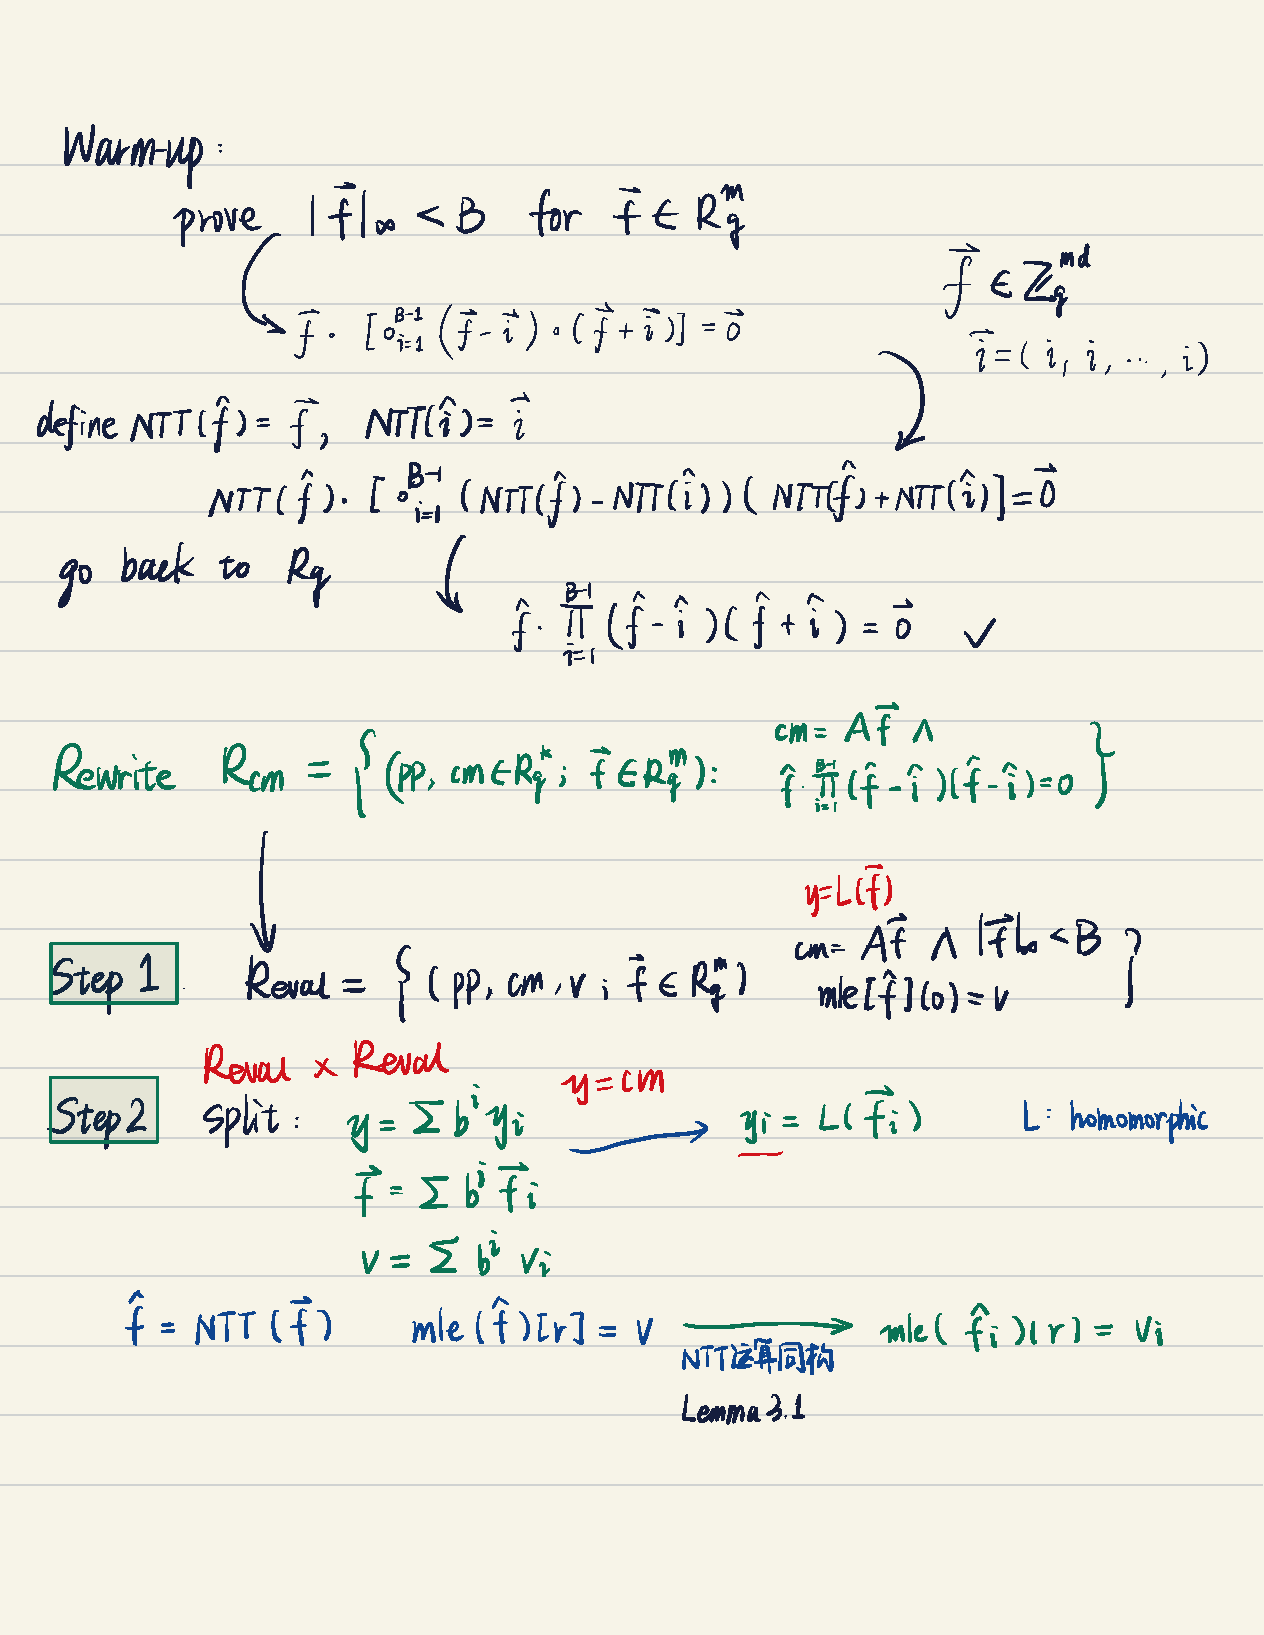 Warm-up:
prove |f⃗|∞ < B for f⃗ ∈ R_q^m
f⃗ ∈ ℤ_q^{md}
f⃗ · [∘_{i=1}^{B-1} (f⃗ - i⃗) ∘ (f⃗ + i⃗)] = 0⃗
i⃗ = (i, i, ⋯, i)
define NTT(f̂) = f⃗, NTT(î) = i⃗
NTT(f̂) · [∘_{i=1}^{B-1} (NTT(f̂) - NTT(î)) (NTT(f̂) + NTT(î)] = 0⃗
go back to Rq
f̂ · ∏_{i=1}^{B-1} (f̂ - î)(f̂ + î) = 0⃗ ✓
cm = Af⃗ ∧
Rewrite R_cm = {(pp, cm ∈ R_q^k; f⃗ ∈ R_q^m): f̂ · ∏_{i=1}^{B-1} (f̂ - î)(f̂ - î) = 0}
y = L(f⃗)
cm = Af⃗ ∧ |f⃗|∞ < B
Step 1 Reval = {(pp, cm, v; f⃗ ∈ R_q^m) mle[f̂](0) = v}
Reval × Reval
y = cm
Step 2 split: y = Σ b^i y_i → y_i = L(f⃗_i) L: homomorphic
f⃗ = Σ b^i f⃗_i
v = Σ b^i v_i
f̂ = NTT(f⃗) mle(f̂)[r] = v → mle(f̂_i)(r) = v_i
NTT运算同构
Lemma 3.1